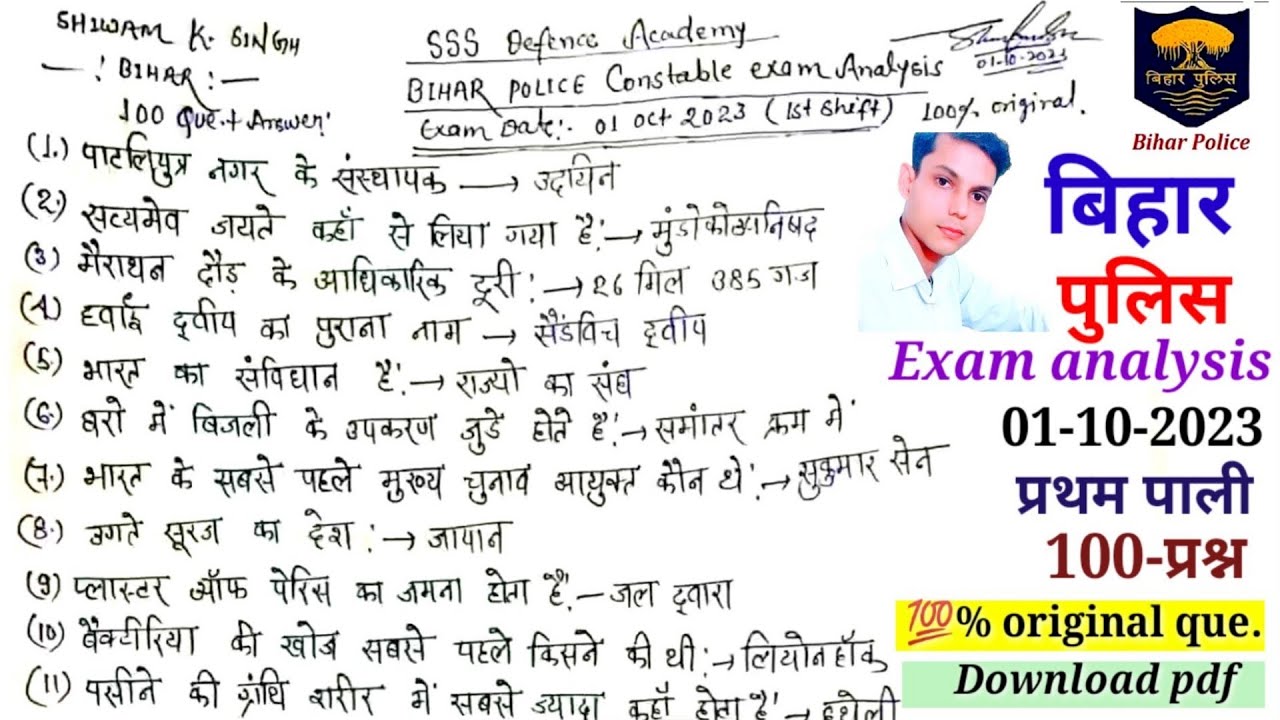 SHIWAM K. SINGH
— : BIHAR : —
100 Que.+ Answer:
SSS Defence Academy
BIHAR POLICE Constable exam Analysis
Exam Date:- 01 oct 2023 (1st Shift)
01-10-2023
100% original.
(1.) पाटलिपुत्र नगर के संस्थापक → उदयिन
(2.) सत्यमेव जयते कहाँ से लिया गया है:→ मुंडोकोव्यनिषद
(3) मैराथन दौड़ के आधिकारिक दूरी :→ 26 मिल 385 गज
(4.) हवाई द्वीप का पुराना नाम → सैंडविच द्वीप
(5.) भारत का संविधान है:→ राज्यो का संघ
(6.) घरो में बिजली के उपकरण जुड़े होते है:→ समांतर क्रम में
(7.) भारत के सबसे पहले मुख्य चुनाव आयुक्त कौन थे:→ सुकुमार सेन
(8.) उगते सूरज का देश :→ जापान
(9) प्लास्टर ऑफ पेरिस का जमना होता है:— जल द्वारा
(10) बैक्टीरिया की खोज सबसे पहले किसने की थी:→ लियोनहॉक
(11) पसीने की ग्रंथि शरीर में सबसे ज्यादा कहाँ होता है → हथेली
बिहार पुलिस
Bihar Police
बिहार
पुलिस
Exam analysis
01-10-2023
प्रथम पाली
100-प्रश्न
💯% original que.
Download pdf